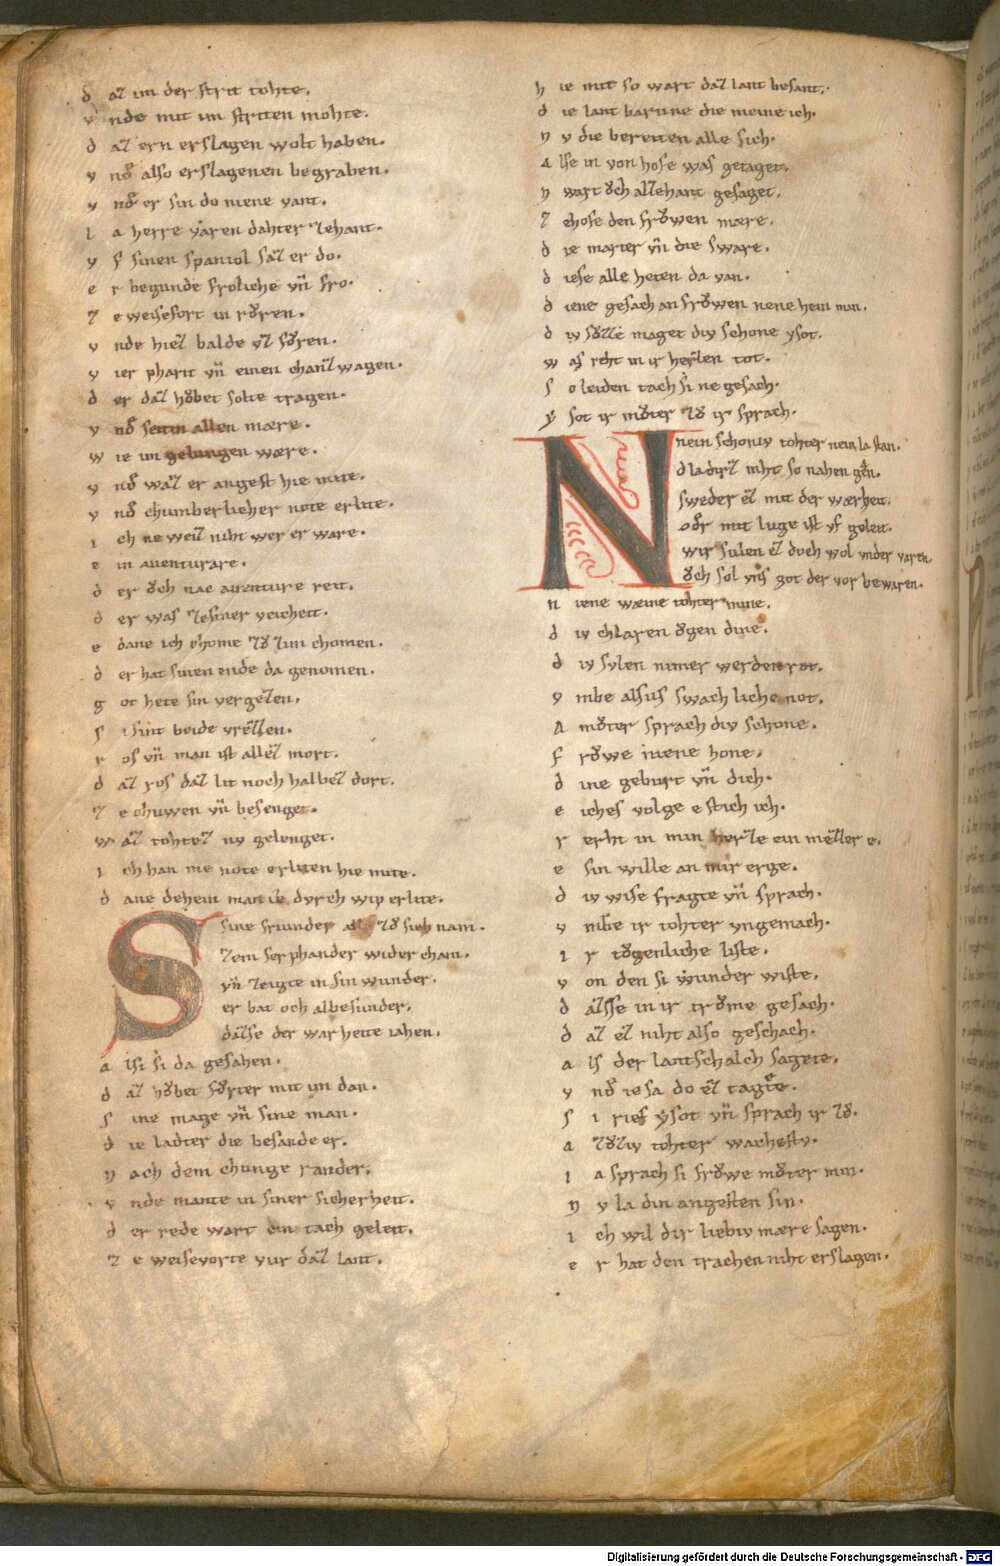 d az im der strit tohte.
v nde mit im striten mohte.
d az ern erslagen wolt haben.
v nð also erslagenen begraben.
v nð er sin do niene vant.
i a herre varen dahter zehant.
v f sinen spaniol saz er do.
e r begunde froliche vn̄ fro.
z e weisefort in rŏren.
v nde hiez balde vz fŏren.
v ier pharit vn̄ einen chanzwagen.
d er daz hŏbet solte tragen.
v nð seitin allen mære.
w ie im gelungen wære.
v nð waz er angest hie mite.
v nð chumberlicher note erlite.
i ch ne weiz niht wer er ware.
e in auenturare.
d er ŏch nac auenture reit.
d er was zesiner veicheit.
e dane ich chome zŏ zim chomen.
d er hat sinen ende da genomen.
g ot hete sin vergezen.
s i sint beide vrezzen.
r os vn̄ man ist allez mort.
d az ros daz lit noch halbez dort.
z e chuwen vn̄ besenget.
w az tohtez nv gelenget.
i ch han me note erliten hie mite.
d ane dehein man ie dvrch wip erlite.
S sine friunder alle zŏ sich nam.
zem serphander wider cham.
vn̄ zeigte in sin wunder.
er bat och albesunder.
dazse der warheite iahen.
a lsi si da gesahen.
d az hŏbet fŏrter mit im dan.
s ine mage vn̄ sine man.
d ie ladter die besander er.
n ach dem chunge rander.
v nde mante in siner sicherheit.
d er rede wart ein tach geleit.
z e weisevorte vur daz lant.
h ie mit so wart daz lant besant.
d ie lant barune die meine ich.
n v die bereiten alle sich.
a lse in von hofe was getaget.
n wart ŏch allehant gesaget.
z ehofe den frŏwen mære.
d ie marter vn̄ die sware.
d iese alle heten da van.
d iene gesach an frŏwen nene hein man.
d iv sŏzze maget div schone ysot.
w as reht in ir herzen tot.
s o leiden tach si ne gesach.
ysot ir mŏter zŏ ir sprach.
N nein schoniv tohter nein la stan.
d la dirz niht so nahen gen.
sweder ez mit der wærheit.
oðr mit luge ist vf geleit.
wir sulen ez doch wol vnder varen.
ŏch sol vns got der vor bewaren.
n iene weine tohter mine.
d iv chlaren ŏgen dine.
d iv sulen nimer werden rot.
v mbe alsus swachliche not.
A mŏter sprach div schone.
f rŏwe niene hone.
d ine geburt vn̄ dich.
e iches volge e stich ich.
r erht in min herze ein mezzer e.
e sin wille an mir erge.
d iv wise fragte vn̄ sprach.
v mbe ir tohter vngemach.
i r tŏgenliche liste.
v on den si wunder wiste.
d azsse in ir trŏme gesach.
d az ez niht also geschach.
a ls der lantschalch sagete.
v nð iesa do ez tagete.
s i rief ysot vn̄ sprach ir zŏ.
a zŏziv tohter wachestv.
i a sprach si frŏwe mŏter min.
n v la din angesten sin.
i ch wil dir liebiv mære sagen.
e r hat den trachen niht erslagen.
Digitalisierung gefördert durch die Deutsche Forschungsgemeinschaft - DFG